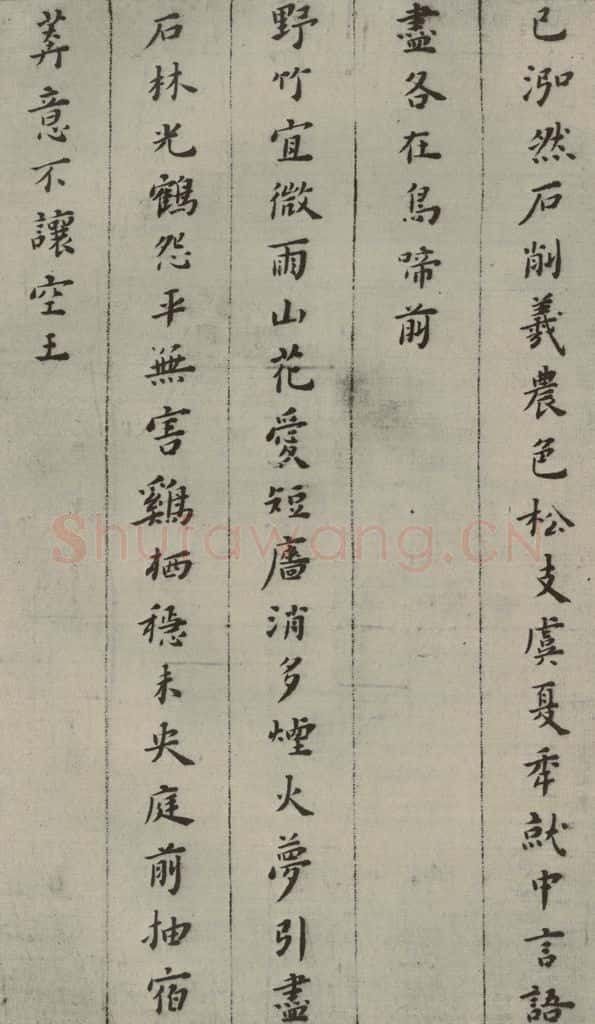 已泓然石削羲農色松支虞夏年就中言語
盡各在鳥啼前
野竹宜微雨山花愛短廧消多煙火夢引盡
石林光鶴怨平無害鷄栖穩未央庭前抽宿
莽意不讓空王
Shufawang.CN